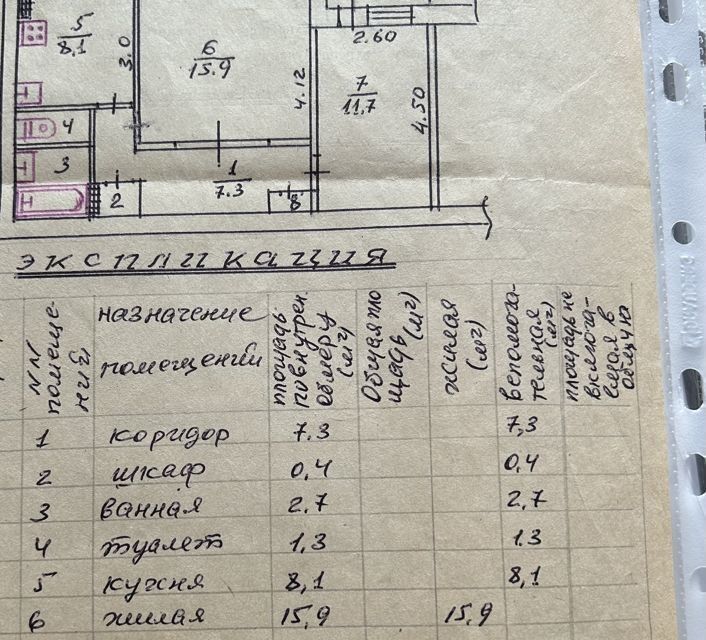 5
8,1
3.0
6
15.9
4.12
2.60
7
11,7
4.50
4
3
2
1
7.3
8
ЭКСПЛИКАЦИЯ
NN помеще-
ний
назначение
помещений
площадь
по внутрен.
обмеру
(м2)
Общая пло
щадь (м2)
жилая
(м2)
вспомога-
тельная
(м2)
площадь не
включа-
емая в
общую
1 коридор 7.3 7,3
2 шкаф 0,4 0,4
3 ванная 2.7 2,7
4 туалет 1,3 1.3
5 кухня 8,1 8,1
6 жилая 15,9 15,9